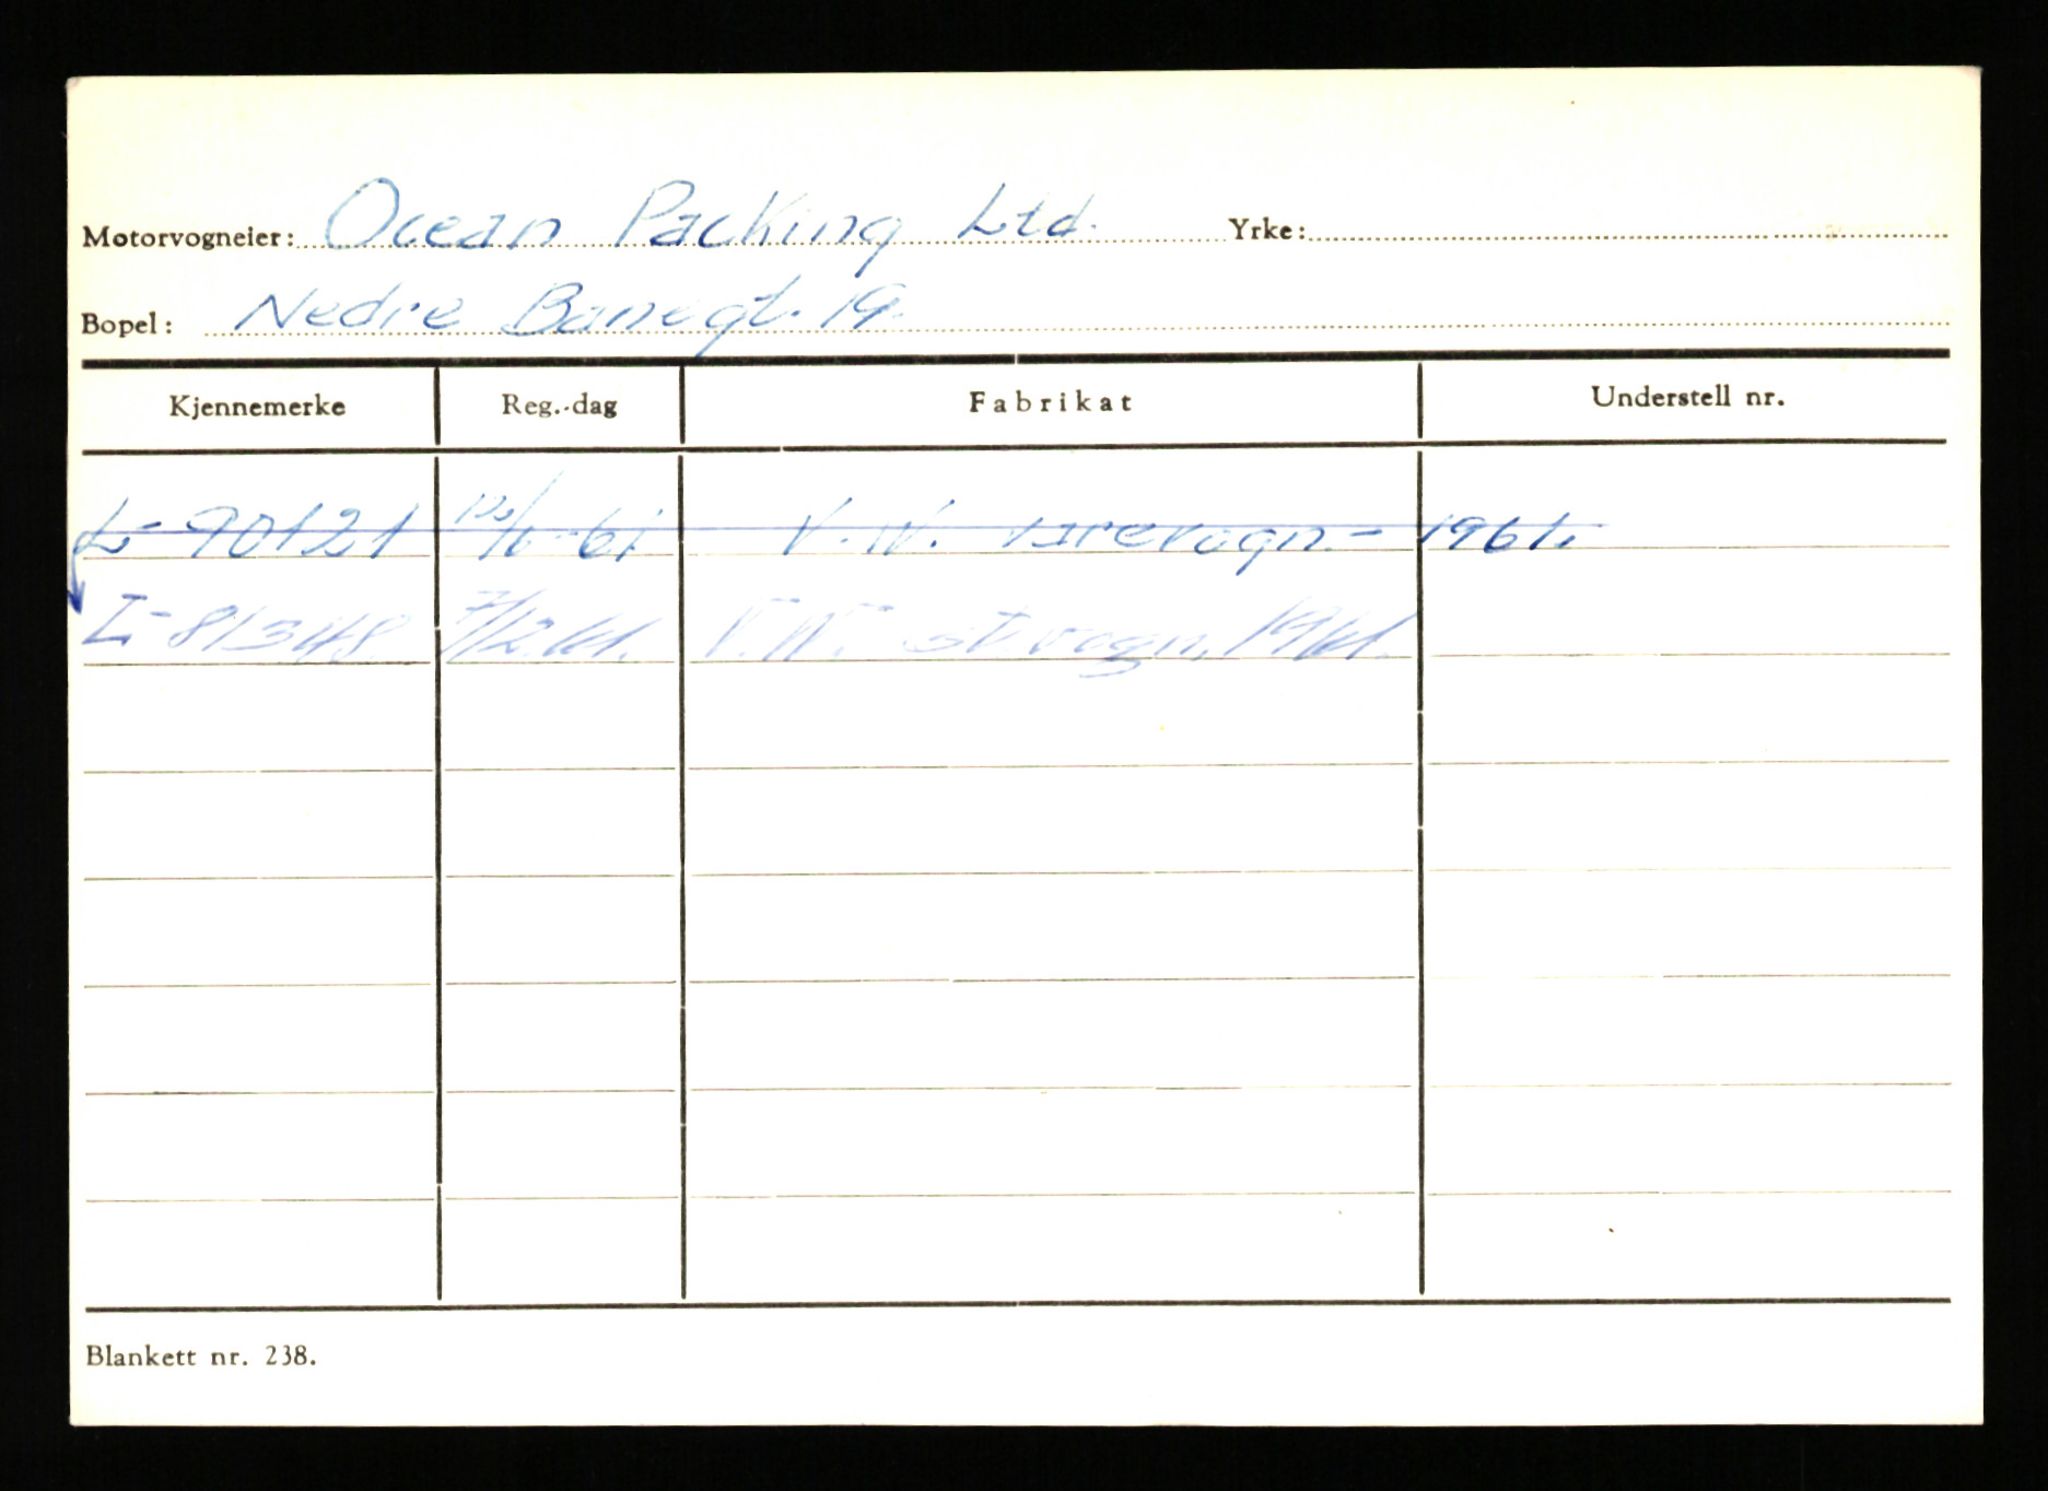 Motorvogneier: Ocean Packing Ltd. Yrke:
Bopel: Nedre Banegt. 19.
Kjennemerke Reg.-dag Fabrikat Understell nr.
L- 90121 61 V.W. varevogn.- 1961.
L- 81348. 7/2.61. V.W. st.vogn. 1961.
Blankett nr. 238.